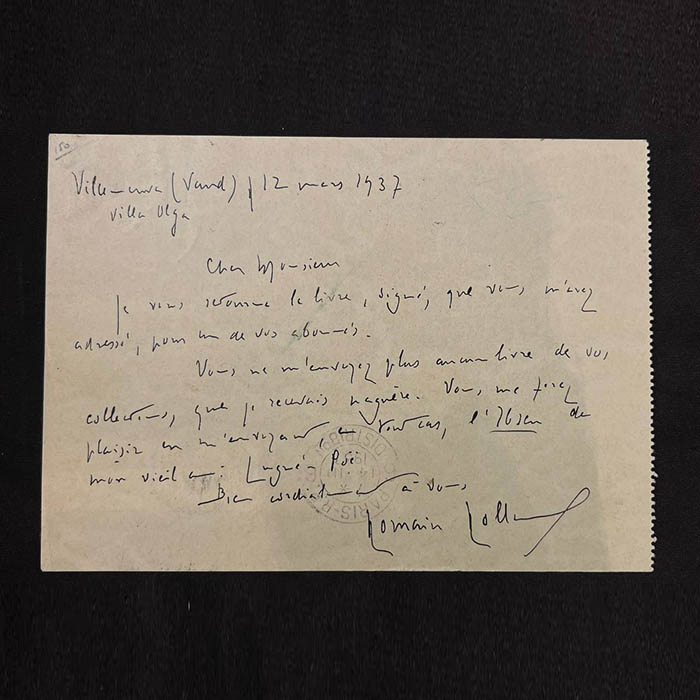 150
Villeneuve (Vaud) 12 mars 1937
villa Olga
Cher Monsieur
Je vous retourne le livre, signé, que vous m'avez
adressé, pour un de vos abonnés.
Vous ne m'envoyez plus aucun livre de vos
collections, que je recevais naguère. Vous me ferez
plaisir en m'envoyant, en tout cas, l'Ibsen de
mon vieil ami Lugné Poë
Bien cordialement à vous
Romain Rolland
PARIS
DISTRIB